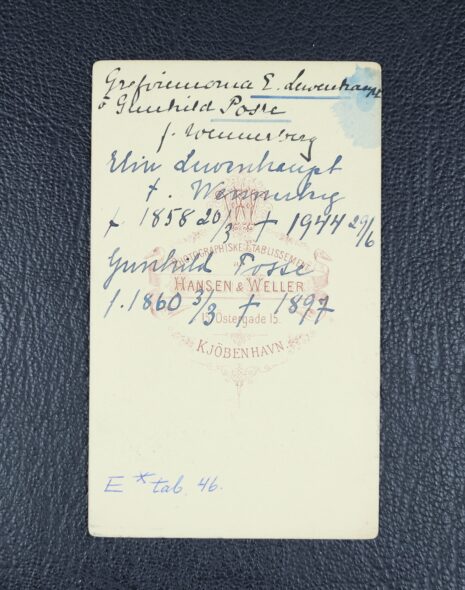 Grefvinnorna E. Lewenhaupt
o Gunhild Posse
f. Wennerberg
Elin Lewenhaupt
f. Wennerberg
f 1858 20/3 † 1944 29/6
PHOTOGRAPHISKE ETABLISSEMENT
Gunhild Posse
HANSEN & WELLER
f. 1860 3/3 † 1897
15 Ostergade 15.
KJÖBENHAVN.
E * tab. 46.